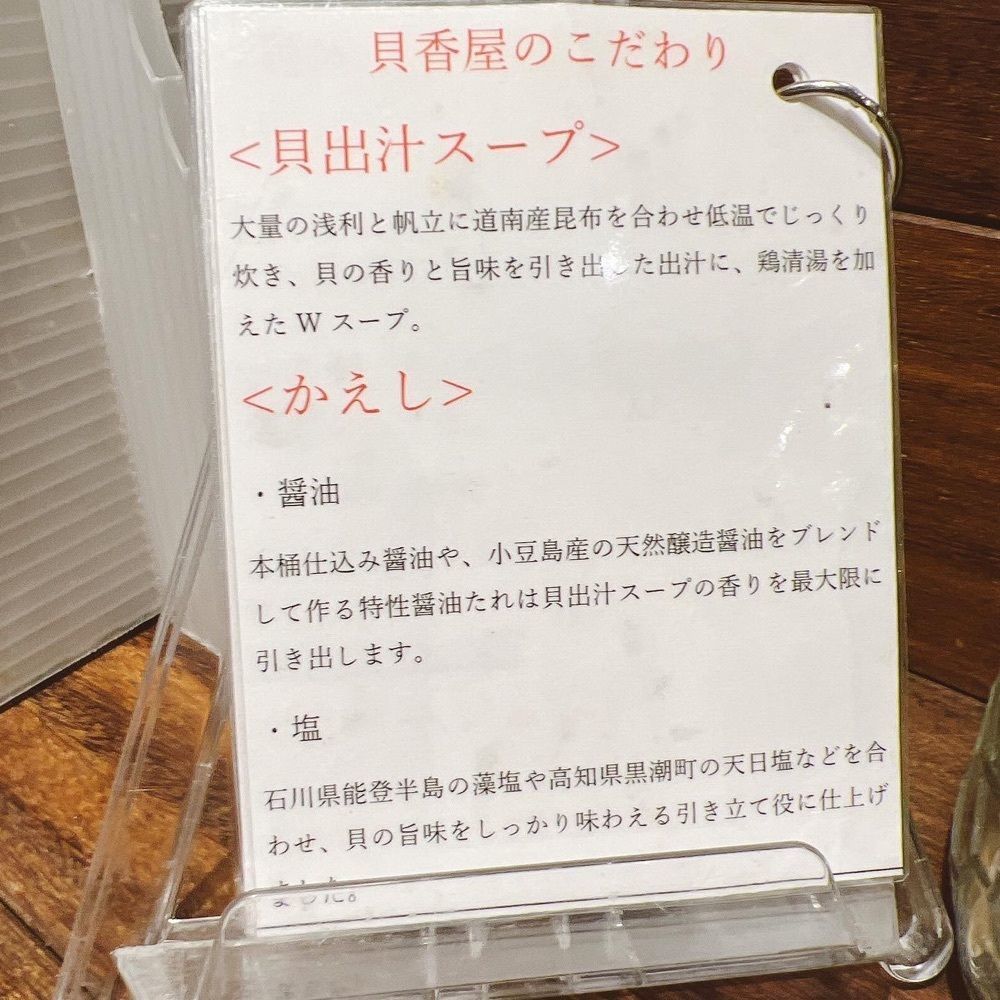 貝香屋のこだわり
<貝出汁スープ>
大量の浅利と帆立に道南産昆布を合わせ低温でじっくり
炊き、貝の香りと旨味を引き出した出汁に、鶏清湯を加
えたWスープ。
<かえし>
・醤油
本桶仕込み醤油や、小豆島産の天然醸造醤油をブレンド
して作る特性醤油たれは貝出汁スープの香りを最大限に
引き出します。
・塩
石川県能登半島の藻塩や高知県黒潮町の天日塩などを合
わせ、貝の旨味をしっかり味わえる引き立て役に仕上げ
ました。